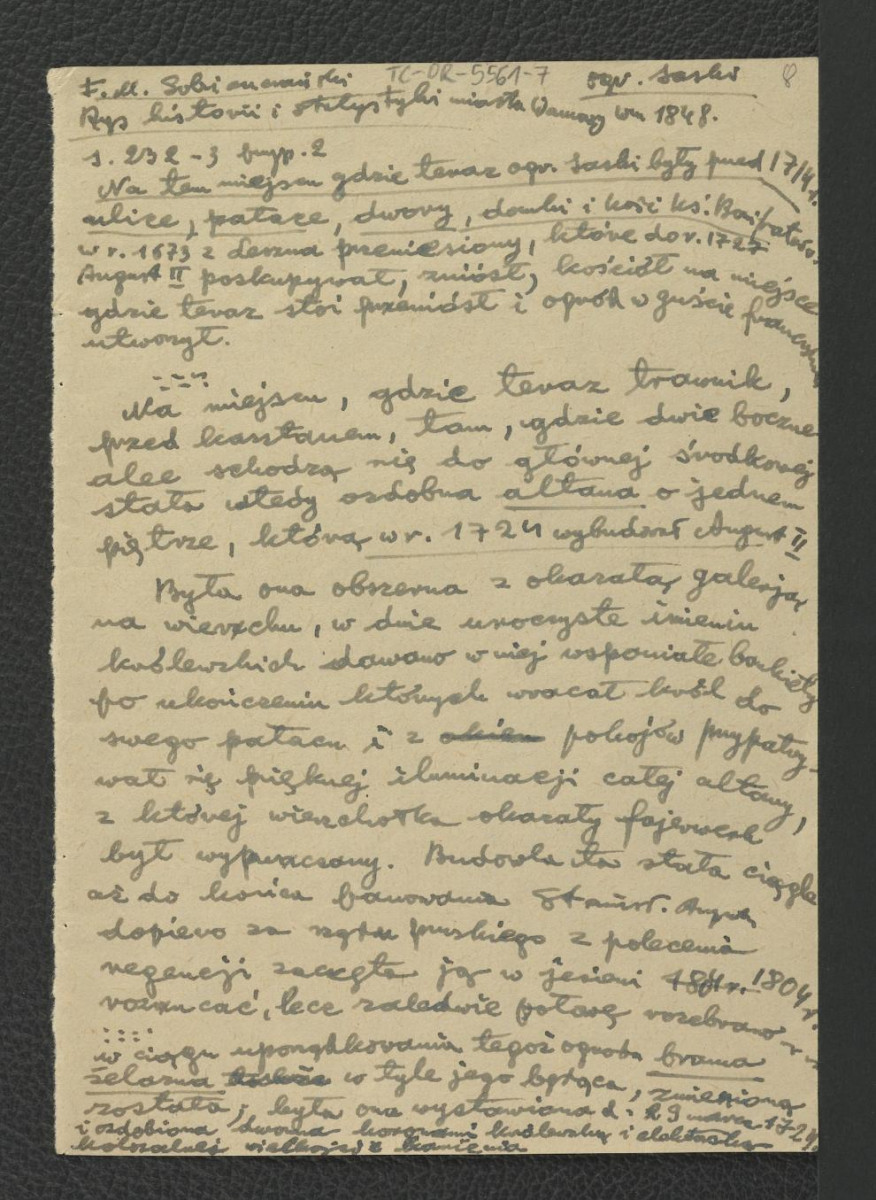 F. M. Sobieszczański TC-DR-5561-7 ogr. Saski 8
Rys historii i statystyki miasta Warszawy w 1848.
s. 232-3 przyp. 2
Na tem miejscu gdzie teraz ogr. Saski były przed 17/4 r.
ulice, pałace, dwory, domki i kość. ks. Bonifratrów
w r. 1673 z Leszna przeniesiony, które do r. 1727
August II poskupywał, zniósł, kościół na miejsce
gdzie teraz stoi przeniósł i ogród w guście francuskim
utworzył.
Na miejscu, gdzie teraz trawnik,
przed kasztanem, tam, gdzie dwie boczne
alee schodzą się do głównej środkowej
stała wtedy ozdobna altana o jednem
piętrze, którą w r. 1724 wybudował August II
Była ona obszerna z okazałą galerją
na wierzchu, w dnie uroczyste imienin
królewskich dawano w niej wspaniałe bankiety
po ukończeniu których wracał król do
swego pałacu i z okien pokojów przypatry-
wał się pięknej iluminacji całej altany,
z której wierzchołka okazały fajerwerk
był wypuszczany. Budowla ta stała ciągle
aż do końca panowania Stanisł. Augusta
dopiero za rządu pruskiego z polecenia
regencji zaczęto ją w jesieni 1804 r.
rozrzucać, lecz zaledwie połowę rozebrano
w ciągu uporządkowania tegoż ogrodu brama
żelazna w tyle jego będąca, zmienioną
została; była ona wystawiona d. 29 marca 1724
i ozdobiona dwoma koronami królewską i elektorską
kolosalnej wielkości z kamienia